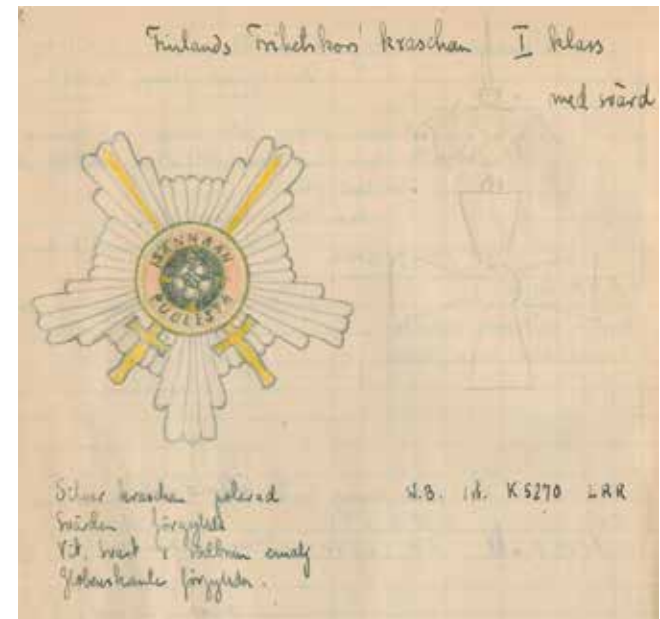 Finlands Frihetskors' kraschan I klass
med svärd
ISÄNMAAN
PUOLESTA
Silver kraschan polerad
Svärden förgyllda
Vit, svart & emalj
förgylda.
K 5270 LRR